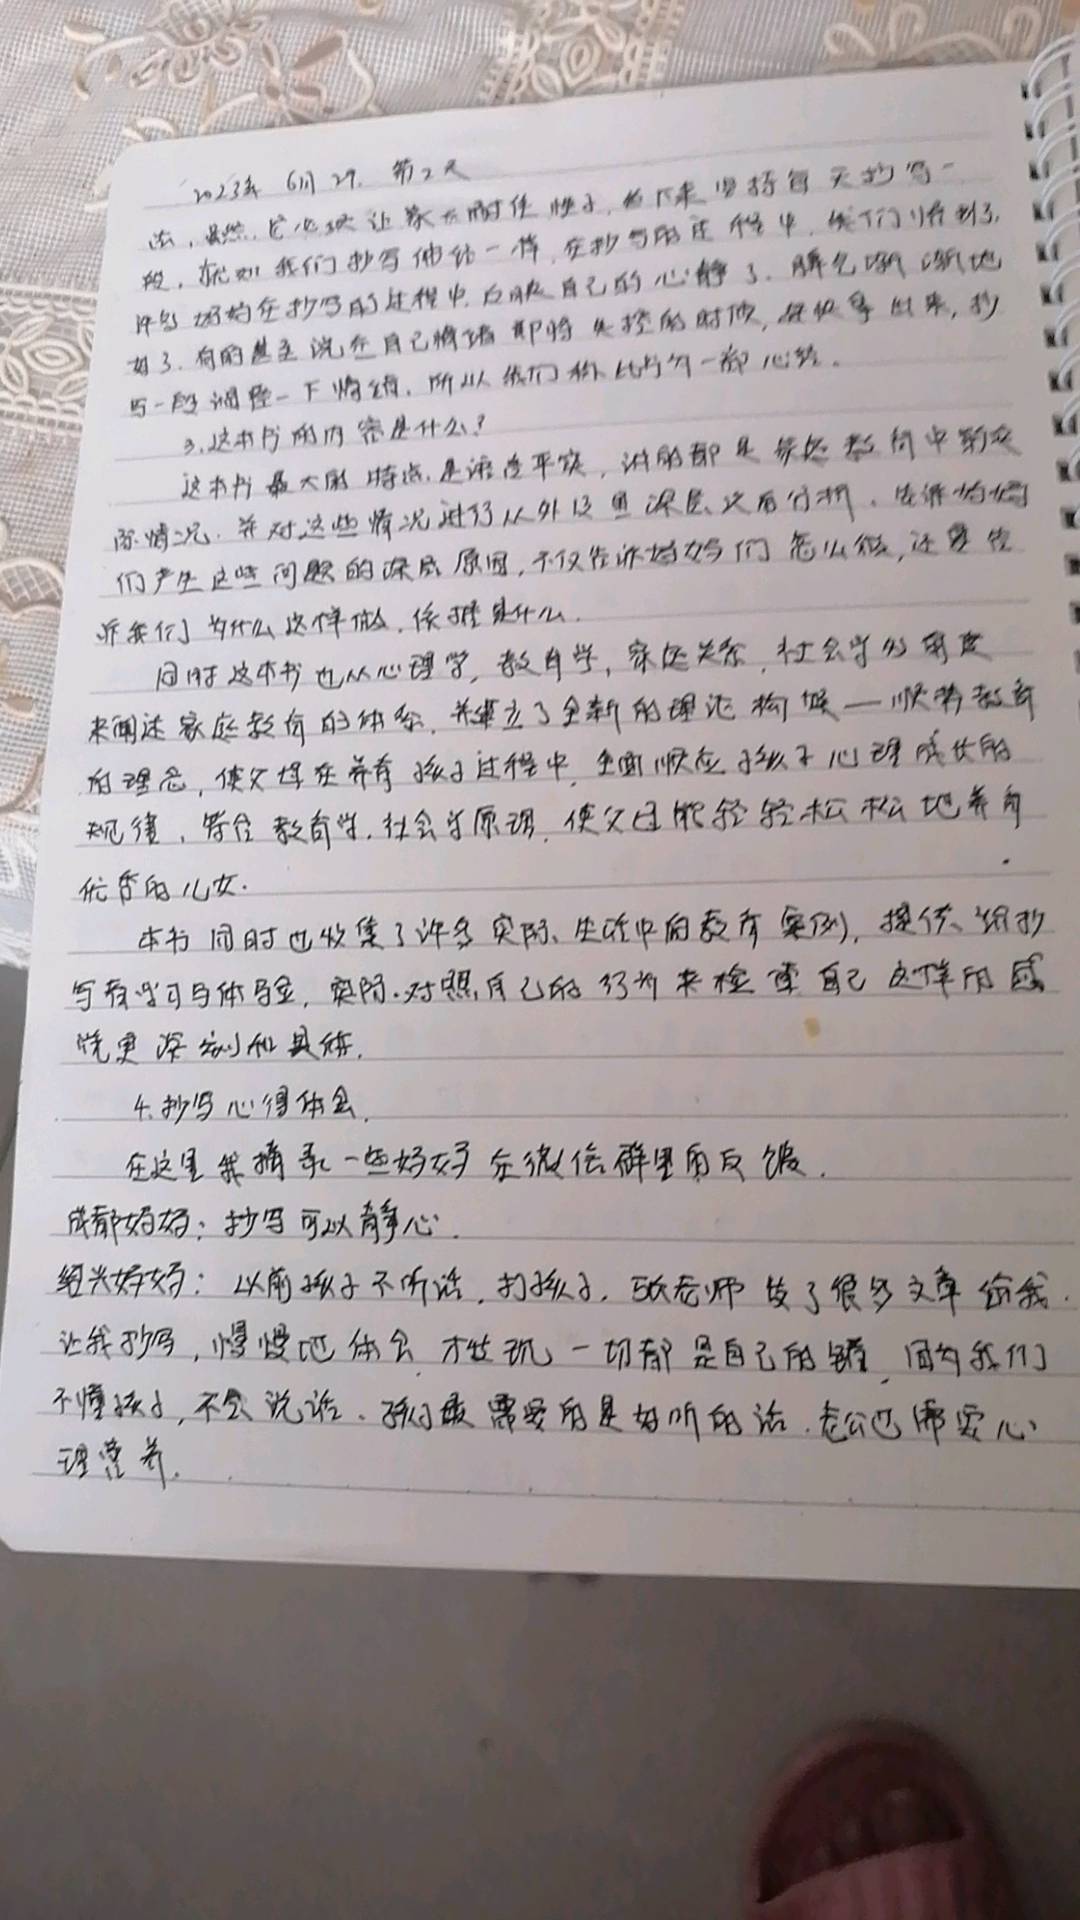 2023年 6月29. 第2天
法，虽然，它必须让家长耐住性子，坐下来坚持每天抄写一
段，就如我们抄写佛经一样，在抄写的过程中，我们收到了，
许多妈妈在抄写的过程中，反映自己的心静了，脾气渐渐地
好了，有的甚至说在自己情绪即将失控的时候，赶快拿出来，抄
写一段调整一下情绪，所以我们称此书为一部心经。
3.这本书的内容是什么？
这本书最大的特点是语言平实，讲的都是家庭教育中
的情况，并对这些情况进行从外及里深层次的分析，告诉妈妈
们产生这些问题的深层原因，不仅告诉妈妈们怎么做，还要告
诉我们为什么这样做，依据是什么。
同时这本书也从心理学，教育学，家庭关系，社会学的角度
来阐述家庭教育的体系，并建立了全新的理论构架—顺势教育
的理念，使父母在养育孩子过程中，全面顺应孩子心理成长的
规律，符合教育学，社会学原理，使父母能轻轻松松地养育
优秀的儿女。
本书同时也收集了许多实际、生活中的教育案例，提供给抄
写者学习与体验，实际对照自己的行为来检查自己这样的感
悟更深刻和具体。
4.抄写心得体会。
在这里我摘录一些妈妈在微信群里的反馈。
成都妈妈：抄写可以静心。
绍兴妈妈：以前孩子不听话，打孩子，张老师发了很多文章给我，
让我抄写，慢慢地体会，才发现一切都是自己的错，因为我们
不懂孩子，不会说话，孩子最需要的是好听的话，老公也需要心
理营养。